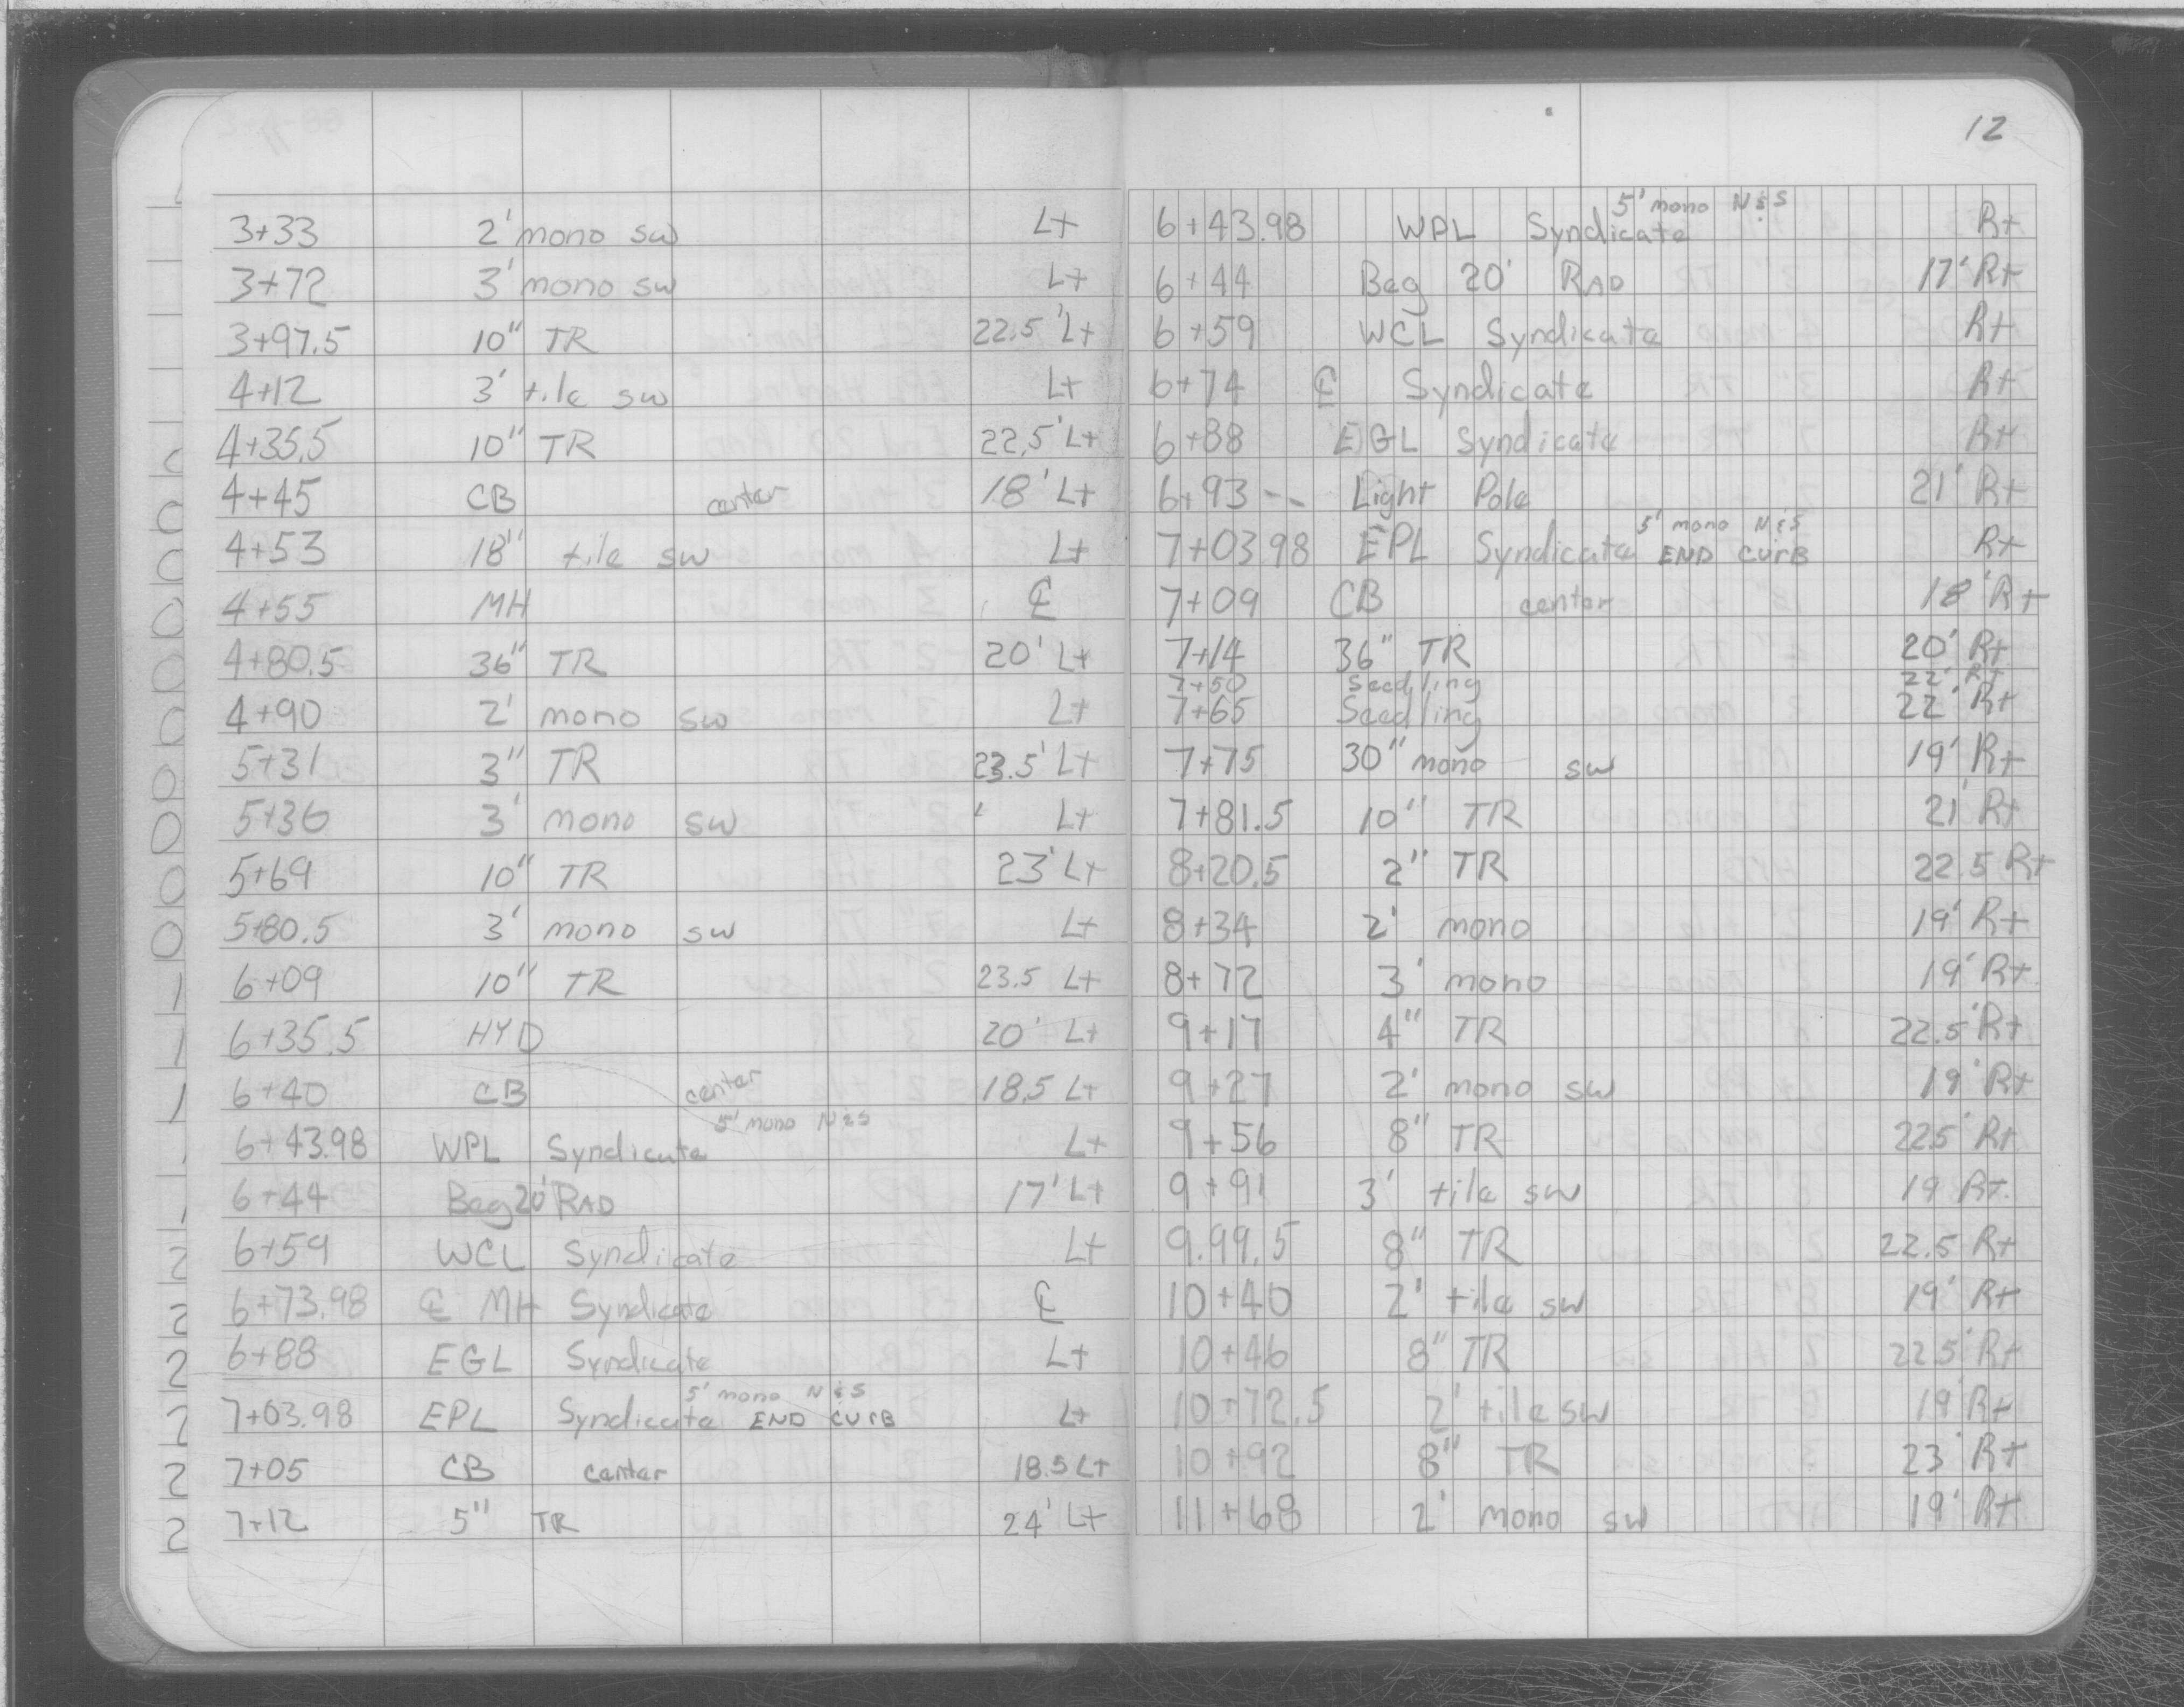 12
3+33 2' mono sw Lt
3+72 3' mono sw Lt
3+97.5 10" TR 22.5' Lt
4+12 3' tile sw Lt
4+35.5 10" TR 22.5' Lt
4+45 CB center 18' Lt
4+53 18" tile sw Lt
4+55 MH ℄
4+80.5 36" TR 20' Lt
4+90 2' mono sw Lt
5+31 3" TR 23.5' Lt
5+36 3' mono sw Lt
5+69 10" TR 23' Lt
5+80.5 3' mono sw Lt
6+09 10" TR 23.5 Lt
6+35.5 HYD 20' Lt
6+40 CB center 18.5 Lt
5' mono N&S
6+43.98 WPL Syndicate Lt
6+44 Beg 20' RAD 17' Lt
6+59 WCL Syndicate Lt
6+73.98 ℄ MH Syndicate ℄
6+88 EGL Syndicate Lt
5' mono N&S
7+03.98 EPL Syndicate END CURB Lt
7+05 CB center 18.5 Lt
7+12 5" TR 24' Lt
5' mono N&S
6+43.98 WPL Syndicate Rt
6+44 Beg 20' RAD 17' Rt
6+59 WCL Syndicate Rt
6+74 ℄ Syndicate Rt
6+88 EGL Syndicate Rt
6+93 -- Light Pole 21' Rt
5' mono N&S
7+03.98 EPL Syndicate END CURB Rt
7+09 CB center 18' Rt
7+14 36" TR 20' Rt
7+50 Seedling 22' Rt
7+65 Seedling 22' Rt
7+75 30" mono sw 19' Rt
7+81.5 10" TR 21' Rt
8+20.5 2" TR 22.5 Rt
8+34 2' mono 19' Rt
8+72 3' mono 19' Rt
9+17 4" TR 22.5' Rt
9+27 2' mono sw 19' Rt
9+56 8" TR 22.5' Rt
9+91 3' tile sw 19 Rt
9.99.5 8" TR 22.5 Rt
10+40 2' tile sw 19' Rt
10+46 8" TR 22.5' Rt
10+72.5 2' tile sw 19' Rt
10+92 8" TR 23' Rt
11+68 2' mono sw 19' Rt